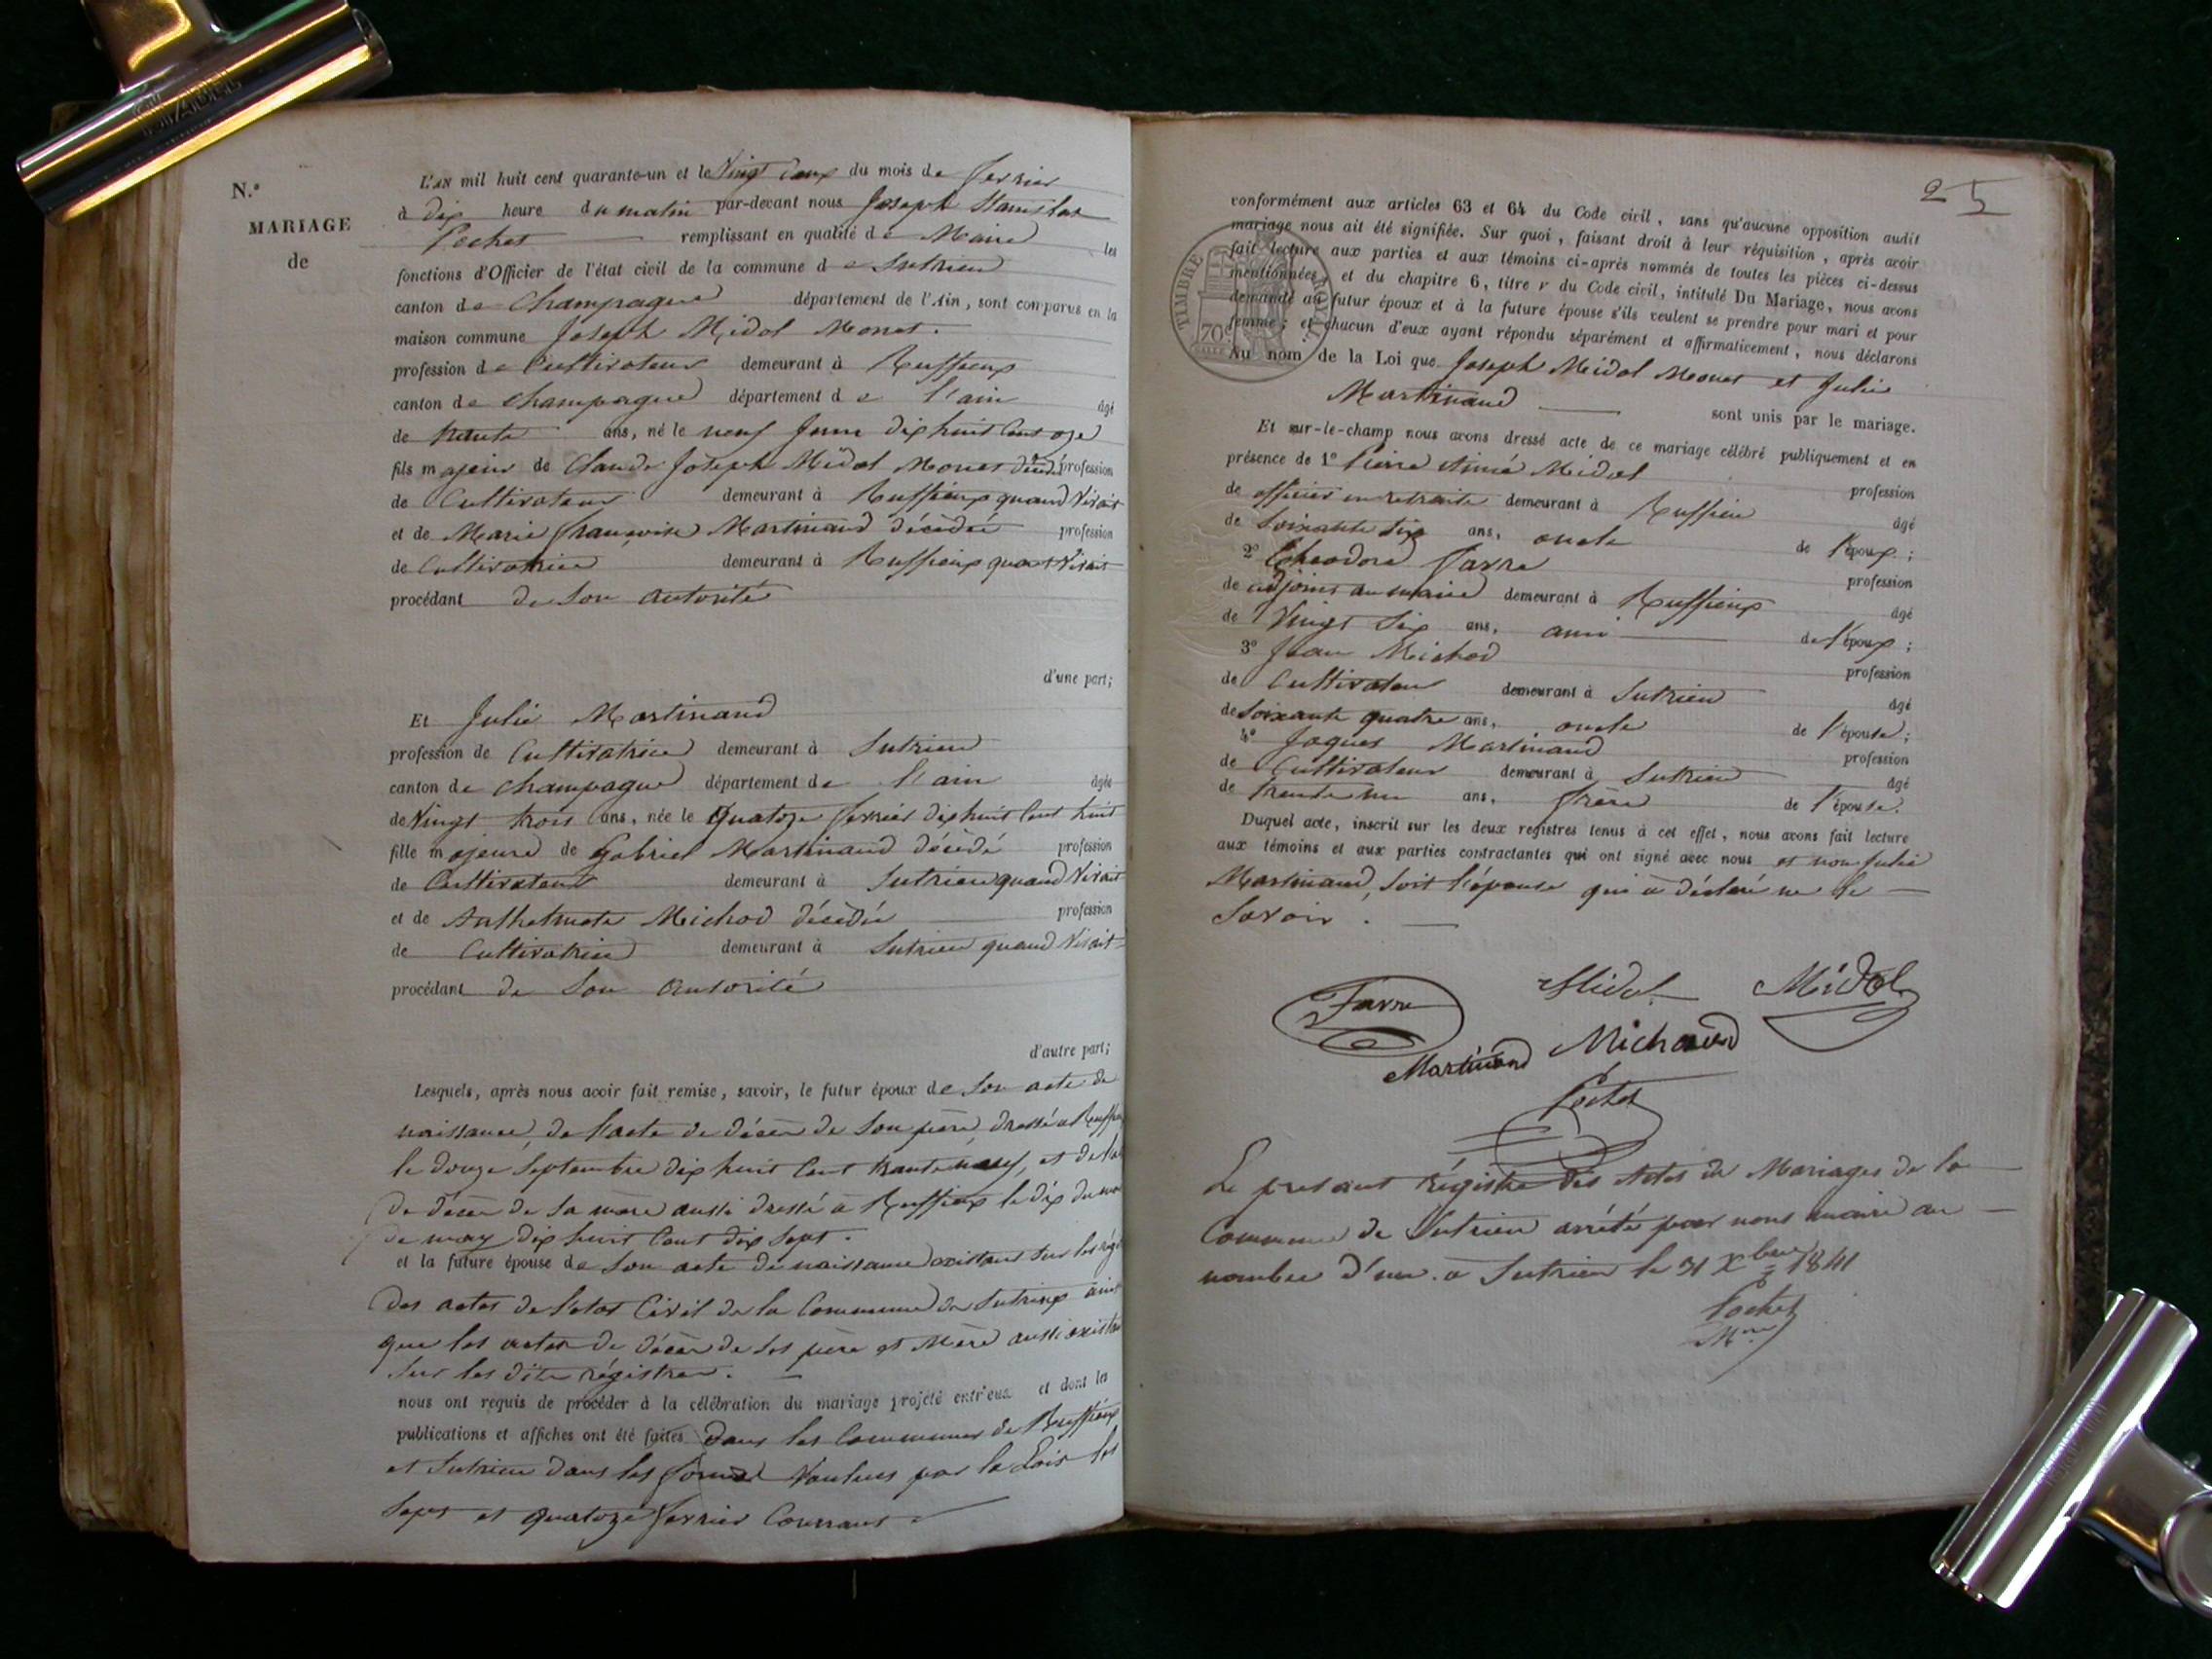 N.o
MARIAGE
de
L'AN mil huit cent quarante-un et le Vingt deux du mois de fevrier
à dix heure du matin par-devant nous Joseph Stanislas
Pochet remplissant en qualité de Maire les
fonctions d'Officier de l'état civil de la commune de Sutrieu
canton de Champagne département de l'Ain, sont comparus en la
maison commune Joseph Midol Monet.
profession de Cultivateur demeurant à Ruffieux
canton de champagne département de l'ain âgé
de trente ans, né le neuf Juin dix huit Cent oze
fils majeur de Claude Joseph Midol Monet décédé profession
de Cultivateur demeurant à Ruffieux quand Vivait
et de Marie françoise Martinand décédée profession
de Cultivatrice demeurant à Ruffieux quant Vivait
procédant de Son autorité
d'une part;
Et Julie Martinand
profession de Cultivatrice demeurant à Sutrieu
canton de champagne département de l'ain âgée
de Vingt trois ans, née le Quatoze fevrier dix huit Cent huit
fille majeure de Gabriel Martinand décédé profession
de Cultivateur demeurant à Sutrieu quand Vivait
et de Anthelmete Michod décédée profession
de Cultivatrice demeurant à Sutrieu quand Vivait
procédant de Son autorité
d'autre part;
Lesquels, après nous avoir fait remise, savoir, le futur époux de Son acte de
naissance, de l'acte de décès de Son père, dressé a
le douze Septembre dix huit Cent trante neuf, et de
de décès de Sa mère aussi dressé a Ruffieux le dix du
de may dix huit Cent dix Sept.
et la future épouse de Son acte de naissance existant Sur les
des actes de l'état Civil de la Commune de Sutrieux
que les actes de décès de Ses père et Mère aussi
Sur les dits régistres.
nous ont requis de procéder à la célébration du mariage projeté entr'eux et dont les
publications et affiches ont été faites Dans les Communes de Ruffieux
et Sutrieu dans les formes Voulues par la Lois les
Sept et Quatoze fevrier Courrant
25
conformément aux articles 63 et 64 du Code civil, sans qu'aucune opposition audit
mariage nous ait été signifiée. Sur quoi, faisant droit à leur réquisition, après avoir
fait lecture aux parties et aux témoins ci-après nommés de toutes les pièces ci-dessus
mentionnées, et du chapitre 6, titre v du Code civil, intitulé Du Mariage, nous avons
demandé au futur époux et à la future épouse s'ils veulent se prendre pour mari et pour
femme; et chacun d'eux ayant répondu séparément et affirmativement, nous déclarons
TIMBRE ROYAL
70
Au nom de la Loi que Joseph Midol Monet et Julie
Martinand sont unis par le mariage.
Et sur-le-champ nous avons dressé acte de ce mariage célébré publiquement et en
présence de 1° Pierre Aimé Midol profession
de officier en retraite demeurant à Ruffieu âgé
de Soixante Six ans, oncle de l'époux;
2° Theodore favre profession
de adjoint au maire demeurant à Ruffieux âgé
de Vingt Six ans, ami de l'époux;
3° Jean Michod profession
de Cultivateur demeurant à Sutrieu âgé
de Soixante quatre ans, oncle de l'épouse;
4° Jaques Martinand profession
de Cultivateur demeurant à Sutrieu âgé
de trente un ans, frère de l'épouse.
Duquel acte, inscrit sur les deux registres tenus à cet effet, nous avons fait lecture
aux témoins et aux parties contractantes qui ont signé avec nous et non Julie
Martinand, Soit l'épouse qui a déclaré ne le
Savoir.
Favre Midol Midol
Martinand Michaud
Pochet
Le present régistre des Actes de Mariages de la
Commune de Sutrieu arrêté par nous maire au
nombre d'un. a Sutrieu le 31 Xbre 1841
Pochet
Mre